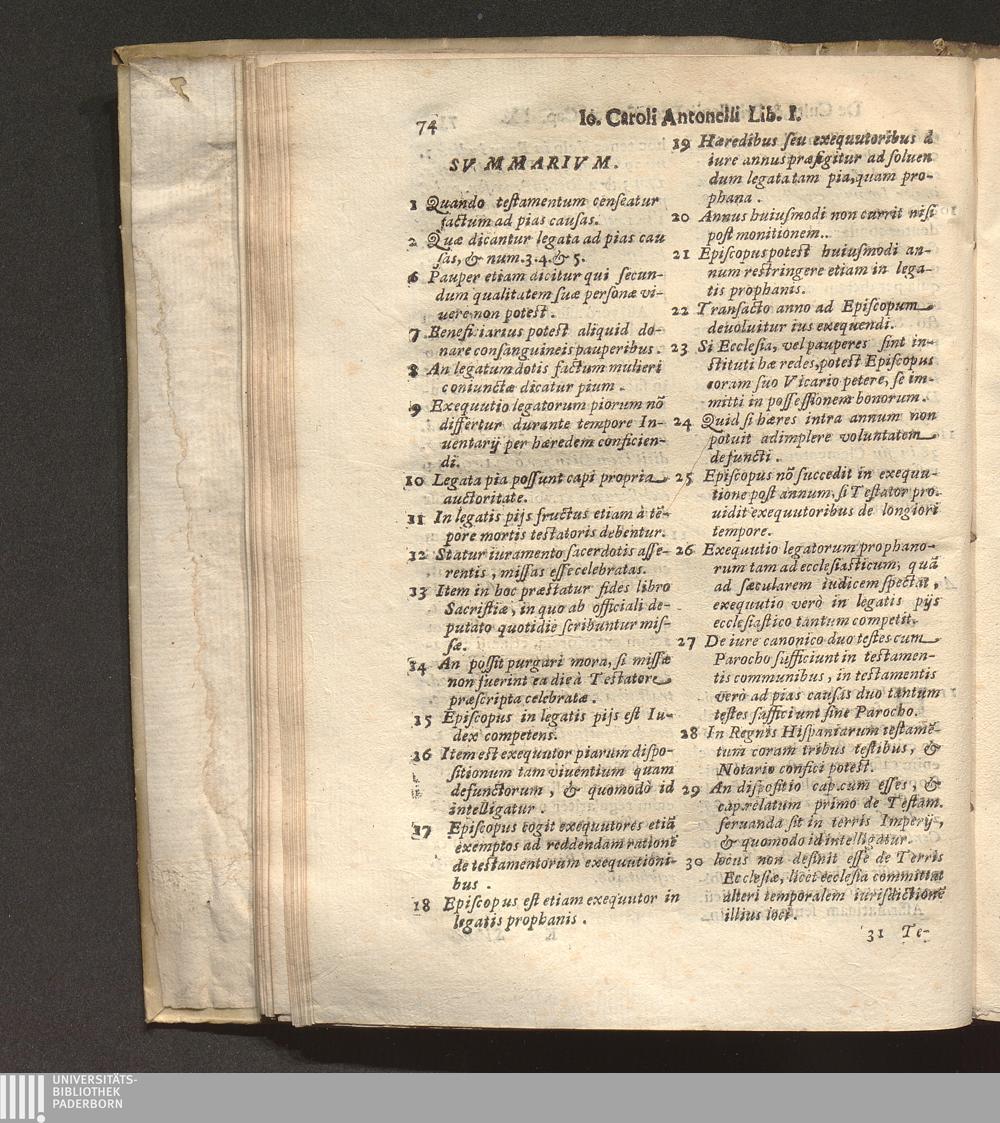 74
Io. Caroli Antonelli Lib. I.
SVMMARIVM.
1 Quando teſtamentum cenſeatur
factum ad pias cauſas.
2 Quæ dicantur legata ad pias cau
ſas, & num. 3. 4. & 5.
6 Pauper etiam dicitur qui ſecun-
dum qualitatem ſuæ perſonæ vi-
uere non poteſt.
7 Beneficiarius poteſt aliquid do-
nare conſanguineis pauperibus.
8 An legatum dotis factum mulieri
coniunctæ dicatur pium.
9 Exequutio legatorum piorum nō
differtur durante tempore In-
uentarij per hæredem conficien-
di.
10 Legata pia poſſunt capi propria
auctoritate.
11 In legatis pijs fructus etiam à tē-
pore mortis teſtatoris debentur.
12 Statur iuramento ſacerdotis aſſe-
rentis, miſſas eſſe celebratas.
13 Item in hoc præſtatur fides libro
Sacriſtiæ, in quo ab officiali de-
putato quotidie ſcribuntur miſ-
ſæ.
14 An poſſit purgari mora, ſi miſſæ
non fuerint ea die à Teſtatore
præſcripta celebratæ.
15 Epiſcopus in legatis pijs eſt Iu-
dex competens.
16 Item eſt exequutor piarum diſpo-
ſitionum tam viuentium quam
defunctorum, & quomodò id
intelligatur.
17 Epiſcopus cogit exequutores etiā
exemptos ad reddendam rationē
de teſtamentorum exequutioni-
bus.
18 Epiſcopus eſt etiam exequutor in
legatis prophanis.
19 Hæredibus ſeu exequutoribus à
iure annus præfigitur ad ſoluen
dum legata tam pia, quam pro-
phana.
20 Annus huiuſmodi non currit niſi
poſt monitionem.
21 Epiſcopus poteſt huiuſmodi an-
num reſtringere etiam in lega-
tis prophanis.
22 Tranſacto anno ad Epiſcopum
deuoluitur ius exequendi.
23 Si Eccleſia, vel pauperes ſint in-
ſtituti hæredes, poteſt Epiſcopus
coram ſuo Vicario petere, ſe im-
mitti in poſſeſſionem bonorum.
24 Quid ſi hæres intra annum non
potuit adimplere voluntatem
defuncti.
25 Epiſcopus nō ſuccedit in exequu-
tione poſt annum, ſi Teſtator pro-
uidit exequutoribus de longiori
tempore.
26 Exequutio legatorum prophano-
rum tam ad eccleſiaſticum, quā
ad ſæcularem iudicem ſpectat,
exequutio verò in legatis pijs
eccleſiaſtico tantum competit.
27 De iure canonico duo teſtes cum
Parocho ſufficiunt in teſtamen-
tis communibus, in teſtamentis
verò ad pias cauſas duo tantum
teſtes ſufficiunt ſine Parocho.
28 In Regnis Hiſpaniarum teſtamē-
tum coram tribus teſtibus, &
Notario confici poteſt.
29 An diſpoſitio cap. cum eſſes, &
cap. relatum primo de Teſtam.
ſeruanda ſit in terris Imperij,
& quomodo id intelligatur.
30 locus non deſinit eſſe de Terris
Eccleſiæ, licèt eccleſia committat
alteri temporalem iuriſdictionē
illius loci.
31 Te-
UNIVERSITÄTS-
BIBLIOTHEK
PADERBORN